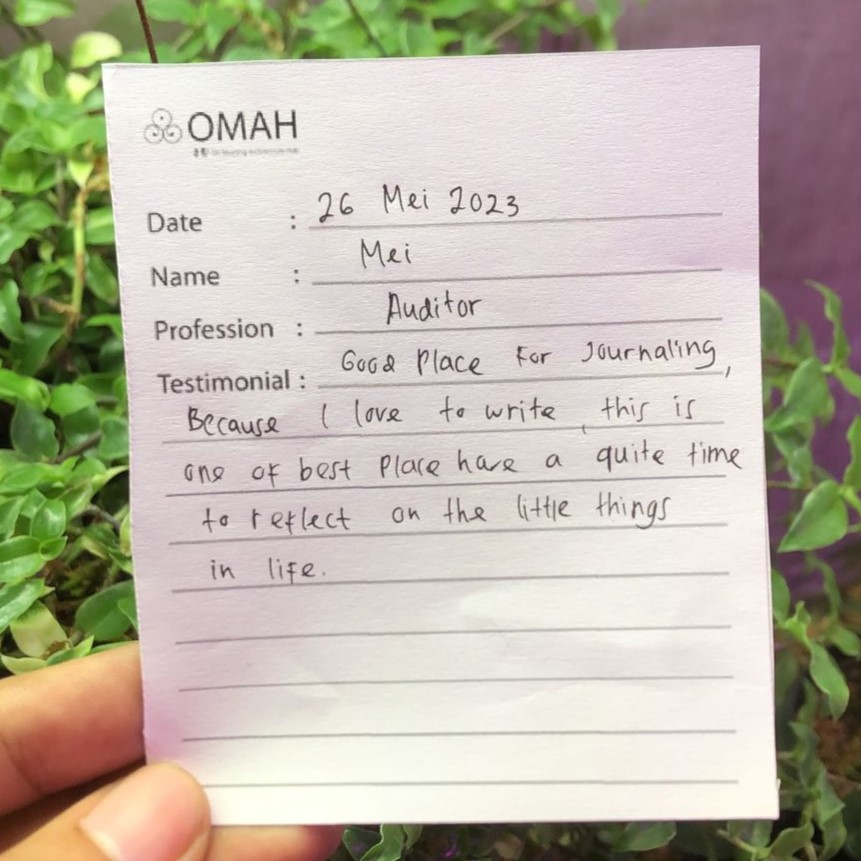 OMAH
Date : 26 Mei 2023
Name : Mei
Profession : Auditor
Testimonial : Good Place For Journaling,
Because I love to write, this is
one of best Place have a quite time
to reflect on the little things
in life.